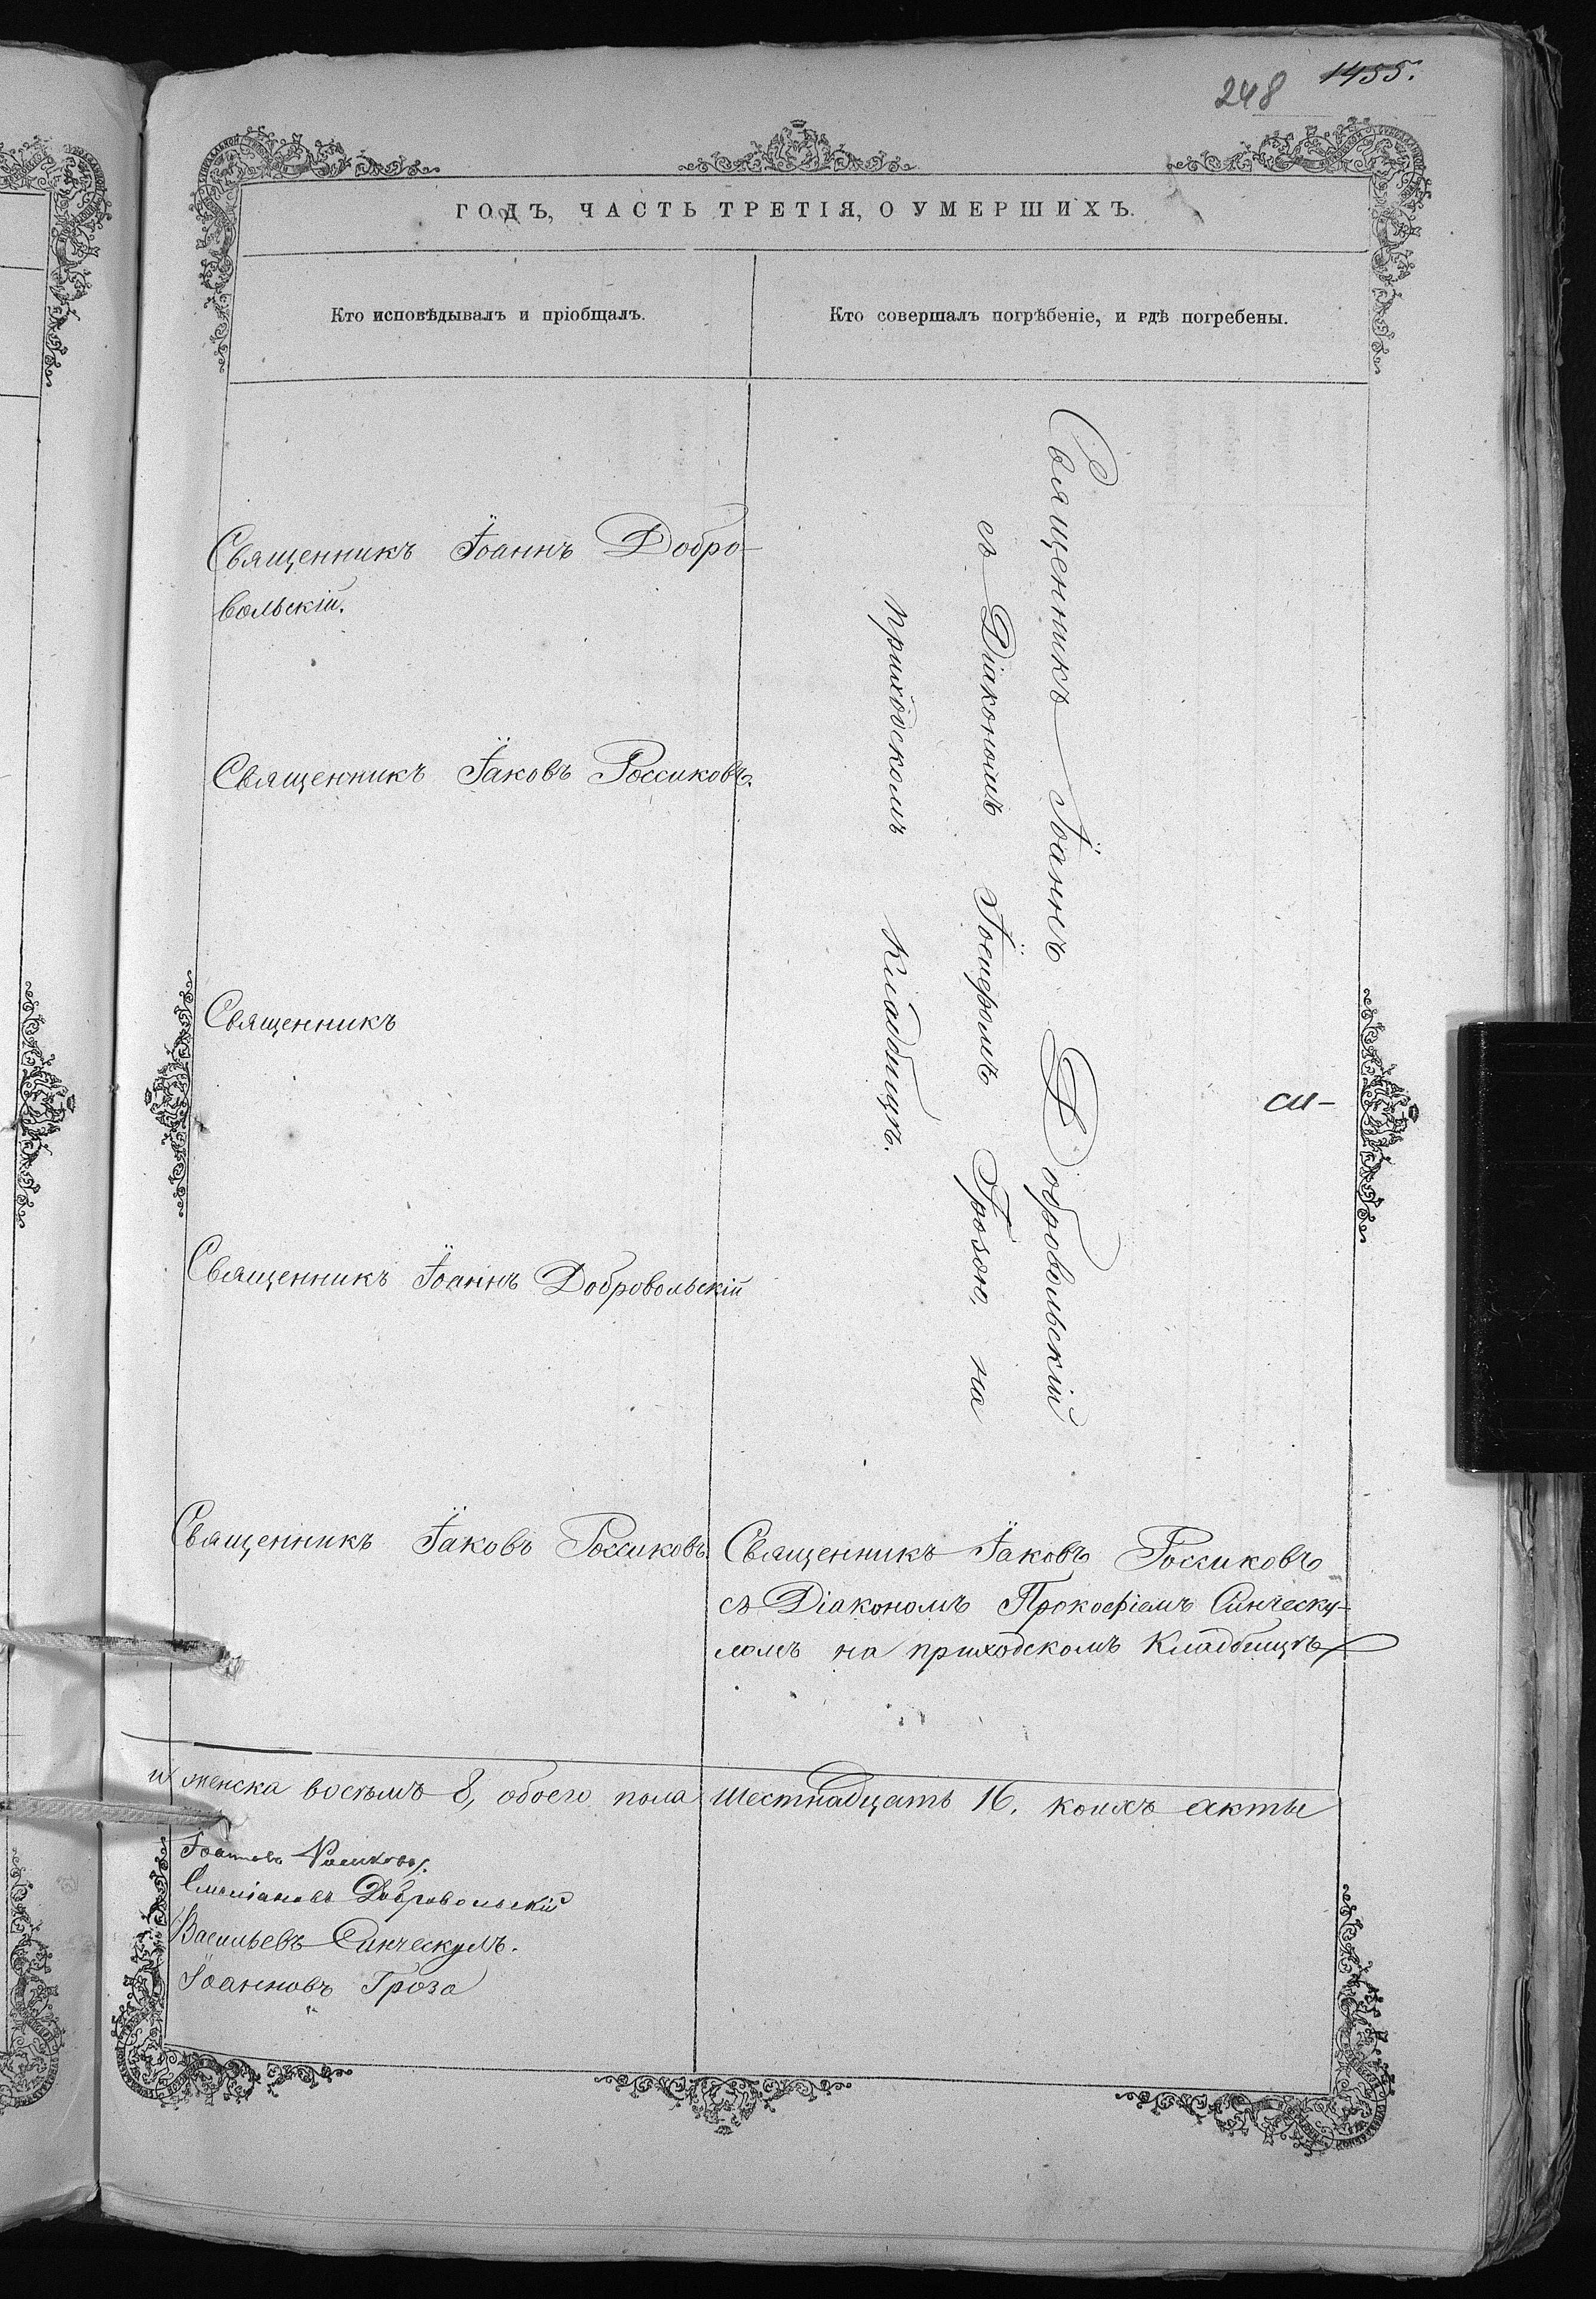 248 1455.
ГОДЪ, ЧАСТЬ ТРЕТІЯ, О УМЕРШИХЪ.
Кто исповѣдывалъ и пріобщалъ.
Кто совершалъ погрѣбеніе, и гдѣ погребены.
Священникъ Іоаннъ Добро-
вольскій.
Священникъ Іаковъ Россиковъ.
Священникъ
Священникъ Іоаннъ Добровольскій
Священникъ Іаковъ Россиковъ.
Священникъ Іоаннъ Добровольскій
съ Діакономъ Грозою, на
приходскомъ кладбищѣ.
Священникъ Іаковъ Россиковъ
съ Діакономъ Прокофіемъ Синческу-
ломъ на приходскомъ кладбищѣ
и женска восемь 8, обоего пола шестнадцать 16. коихъ акты
Добровольскій
Васильевъ Синческулъ.
Іоанновъ Гроза